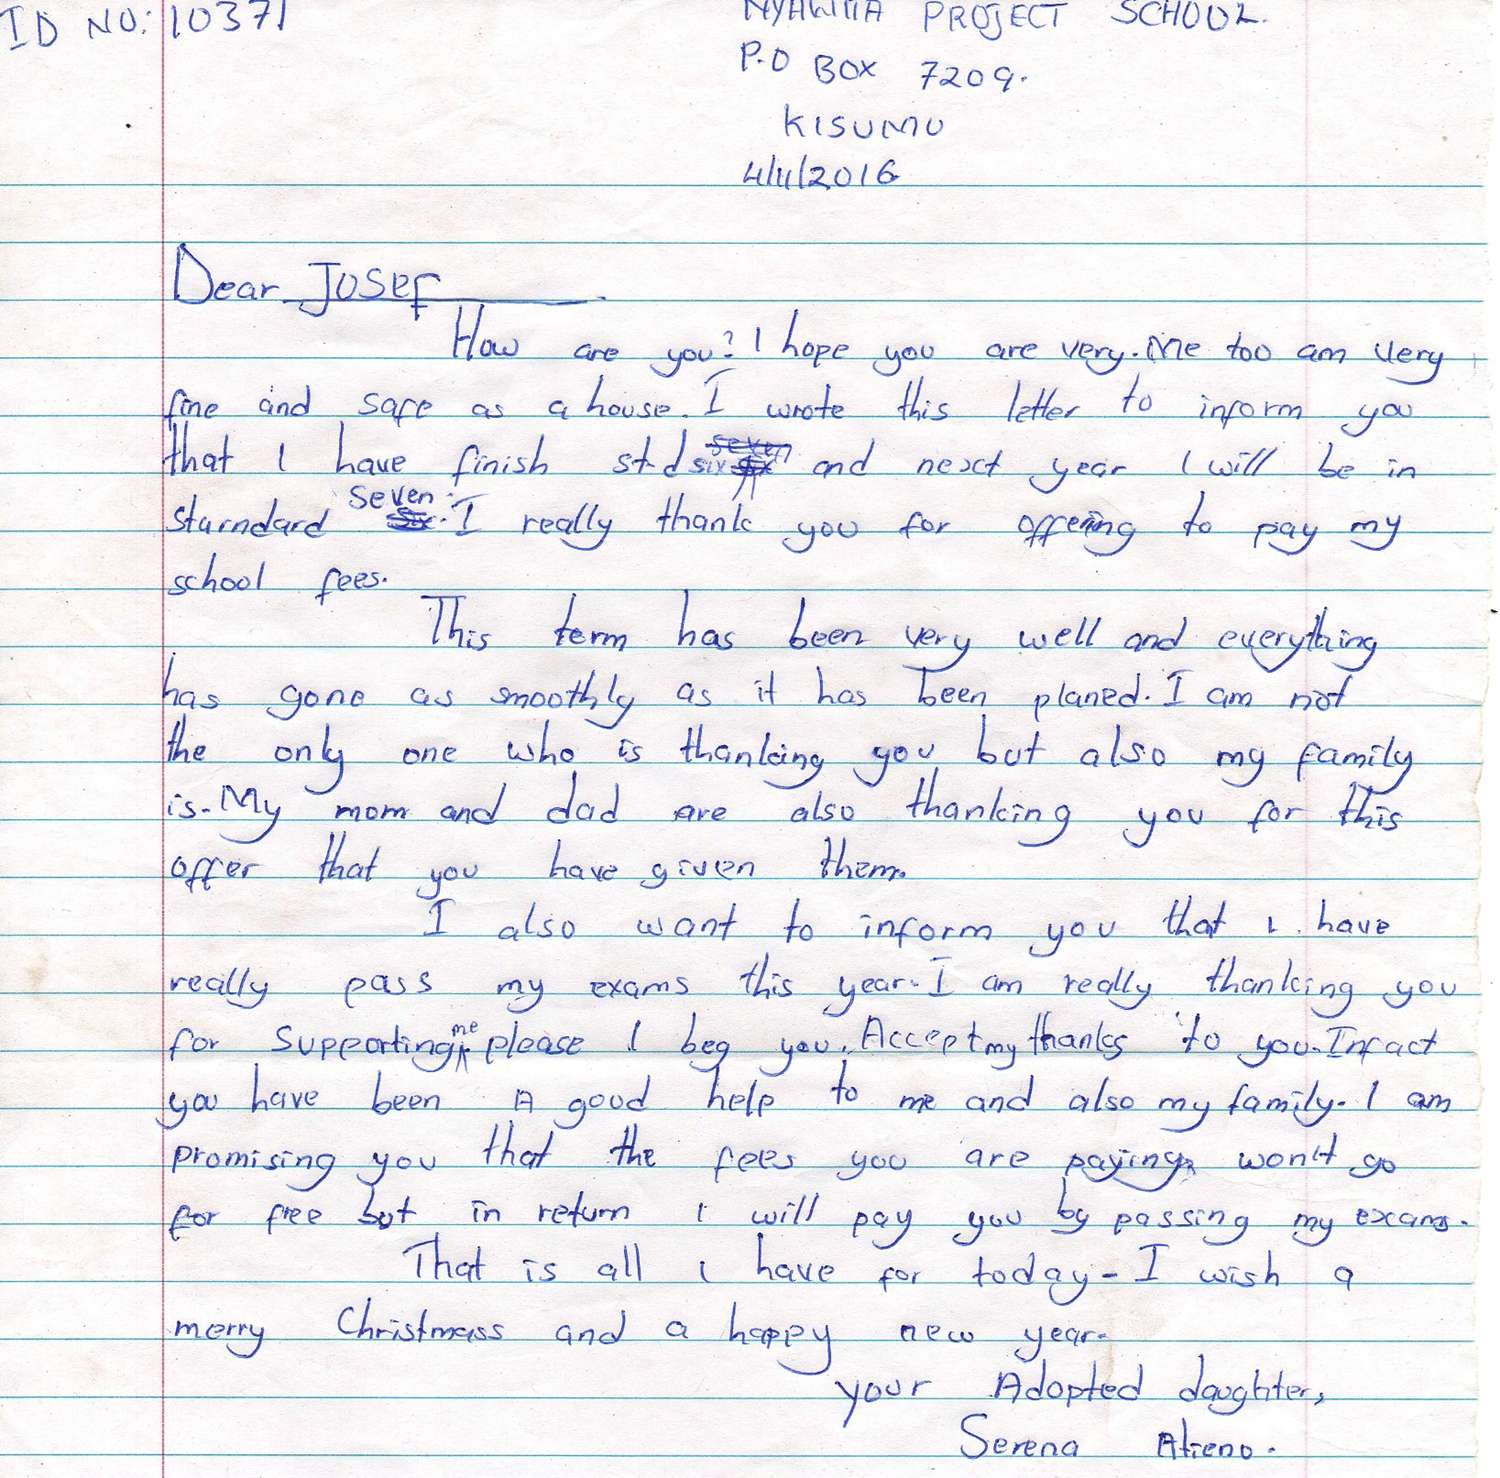 ID NO: 10371
PROJECT SCHOOL.
P.O BOX 7209.
KISUMU
4/11/2016
Dear Josef
How are you? I hope you are very. Me too am very
fine and safe as a house. I wrote this letter to inform you
that I have finish std six and next year I will be in
sturndard seven. I really thank you for offering to pay my
school fees.
This term has been very well and everything
has gone as smoothly as it has been planed. I am not
the only one who is thanking you but also my family
is. My mom and dad are also thanking you for this
offer that you have given them.
I also want to inform you that i have
really pass my exams this year. I am really thanking you
for supporting me please I beg you. Accept my thanks to you. Infact
you have been A good help to me and also my family. I am
promising you that the fees you are paying won't go
for free but in return i will pay you by passing my exams.
That is all i have for today - I wish a
merry Christmass and a happy new year.
your Adopted daughter,
Serena Atieno.